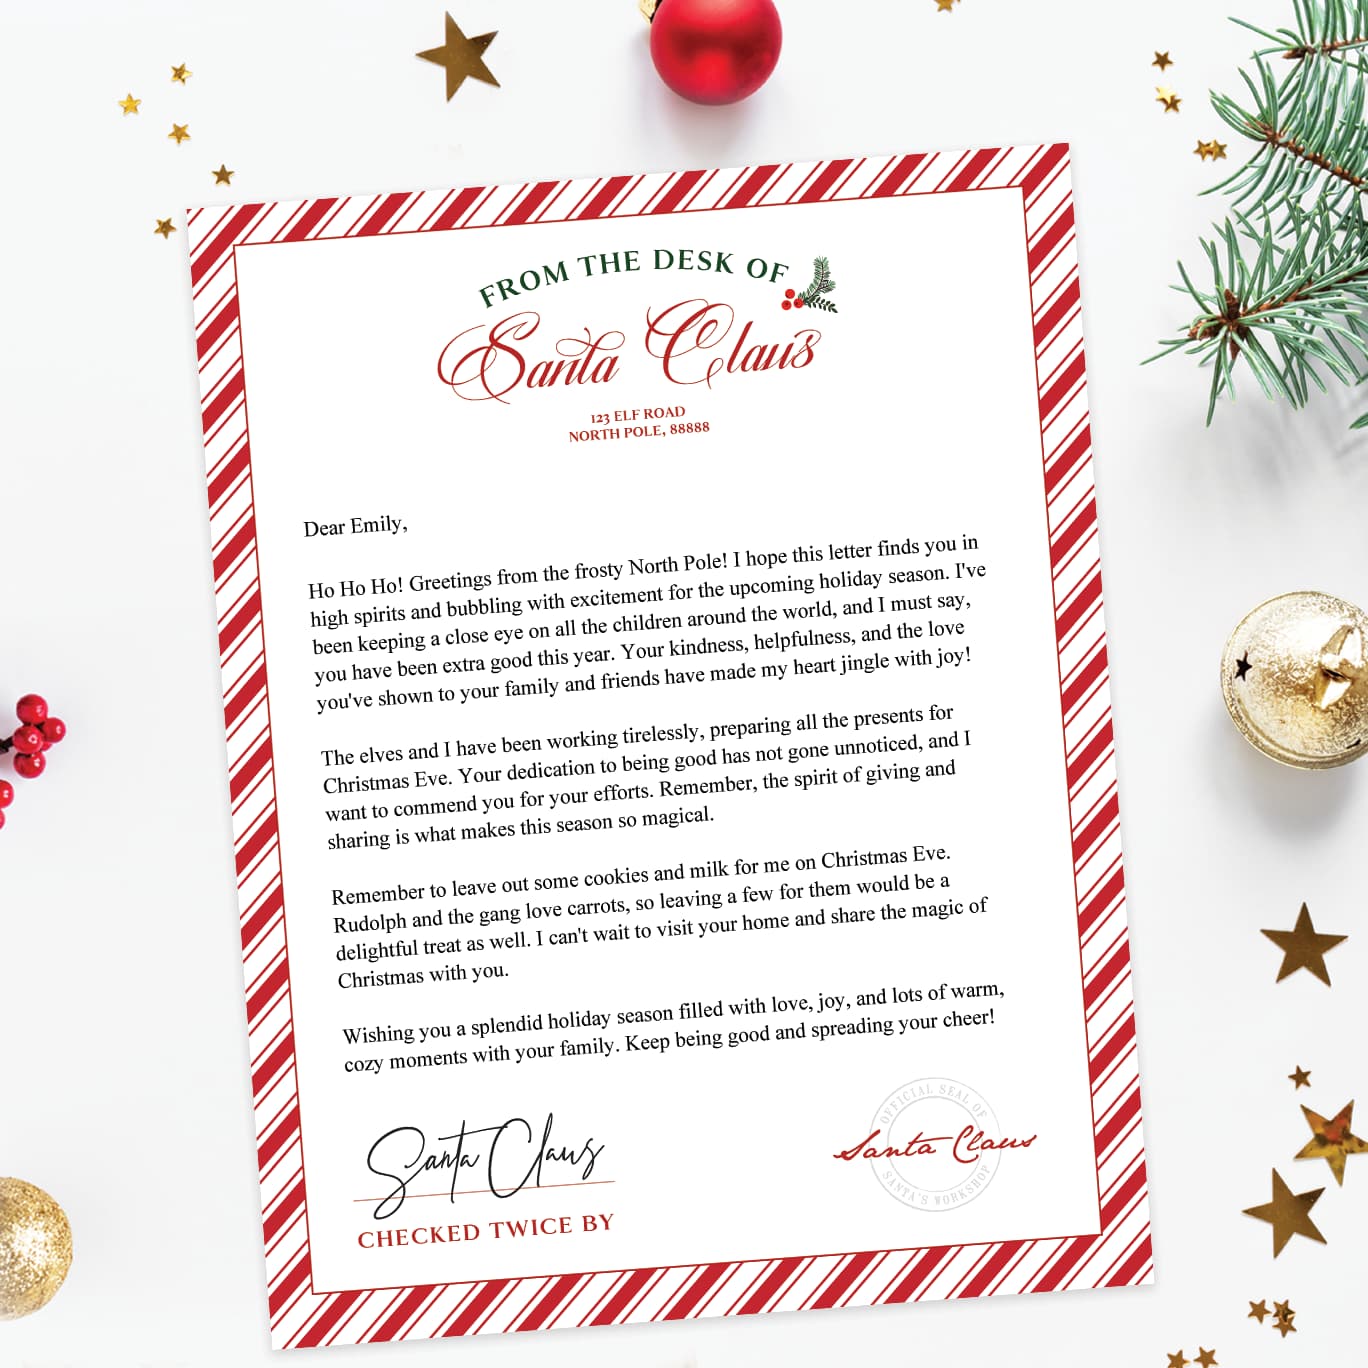 FROM THE DESK OF
Santa Claus
123 ELF ROAD
NORTH POLE, 88888
Dear Emily,
Ho Ho Ho! Greetings from the frosty North Pole! I hope this letter finds you in
high spirits and bubbling with excitement for the upcoming holiday season. I've
been keeping a close eye on all the children around the world, and I must say,
you have been extra good this year. Your kindness, helpfulness, and the love
you've shown to your family and friends have made my heart jingle with joy!
The elves and I have been working tirelessly, preparing all the presents for
Christmas Eve. Your dedication to being good has not gone unnoticed, and I
want to commend you for your efforts. Remember, the spirit of giving and
sharing is what makes this season so magical.
Remember to leave out some cookies and milk for me on Christmas Eve.
Rudolph and the gang love carrots, so leaving a few for them would be a
delightful treat as well. I can't wait to visit your home and share the magic of
Christmas with you.
Wishing you a splendid holiday season filled with love, joy, and lots of warm,
cozy moments with your family. Keep being good and spreading your cheer!
Santa Claus
CHECKED TWICE BY
OFFICIAL SEAL OF
Santa Claus
SANTA'S WORKSHOP